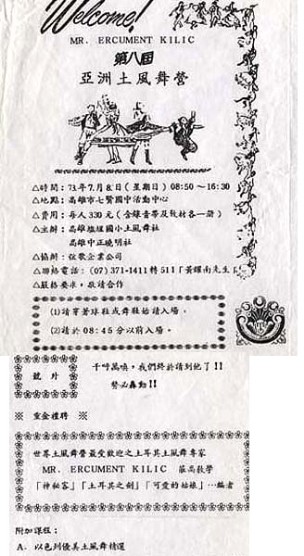 Welcome!
MR. ERCUMENT KILIC
第八屆
亞洲土風舞營
△時間：73年7月8日(星期日) 08:50～16:30
△地點：高雄市七賢國中活動中心
△費用：每人330元(含錄音帶及教材各一冊)
△主辦：高雄塩埕國小土風舞社
高雄中正曉明社
△協辦：弦歌企業公司
△聯絡電話：(07)371-1411轉511「黃耀南先生
△嚴格要求，敬請合作
(1)請穿著球鞋或舞鞋始入場。
(2)請於08:45分以前入場。
號外
千呼萬喚，我們終於請到他了!!
贊必轟動!!
※ 重金禮聘 ※
世界土風舞營最受歡迎之土耳其土風舞專家
MR. ERCUMENT KILIC 蒞高教學
「神秘客」「土耳其之劍」「可愛的姑娘」…編者
附加課程：
A. 以色列優美土風舞精選